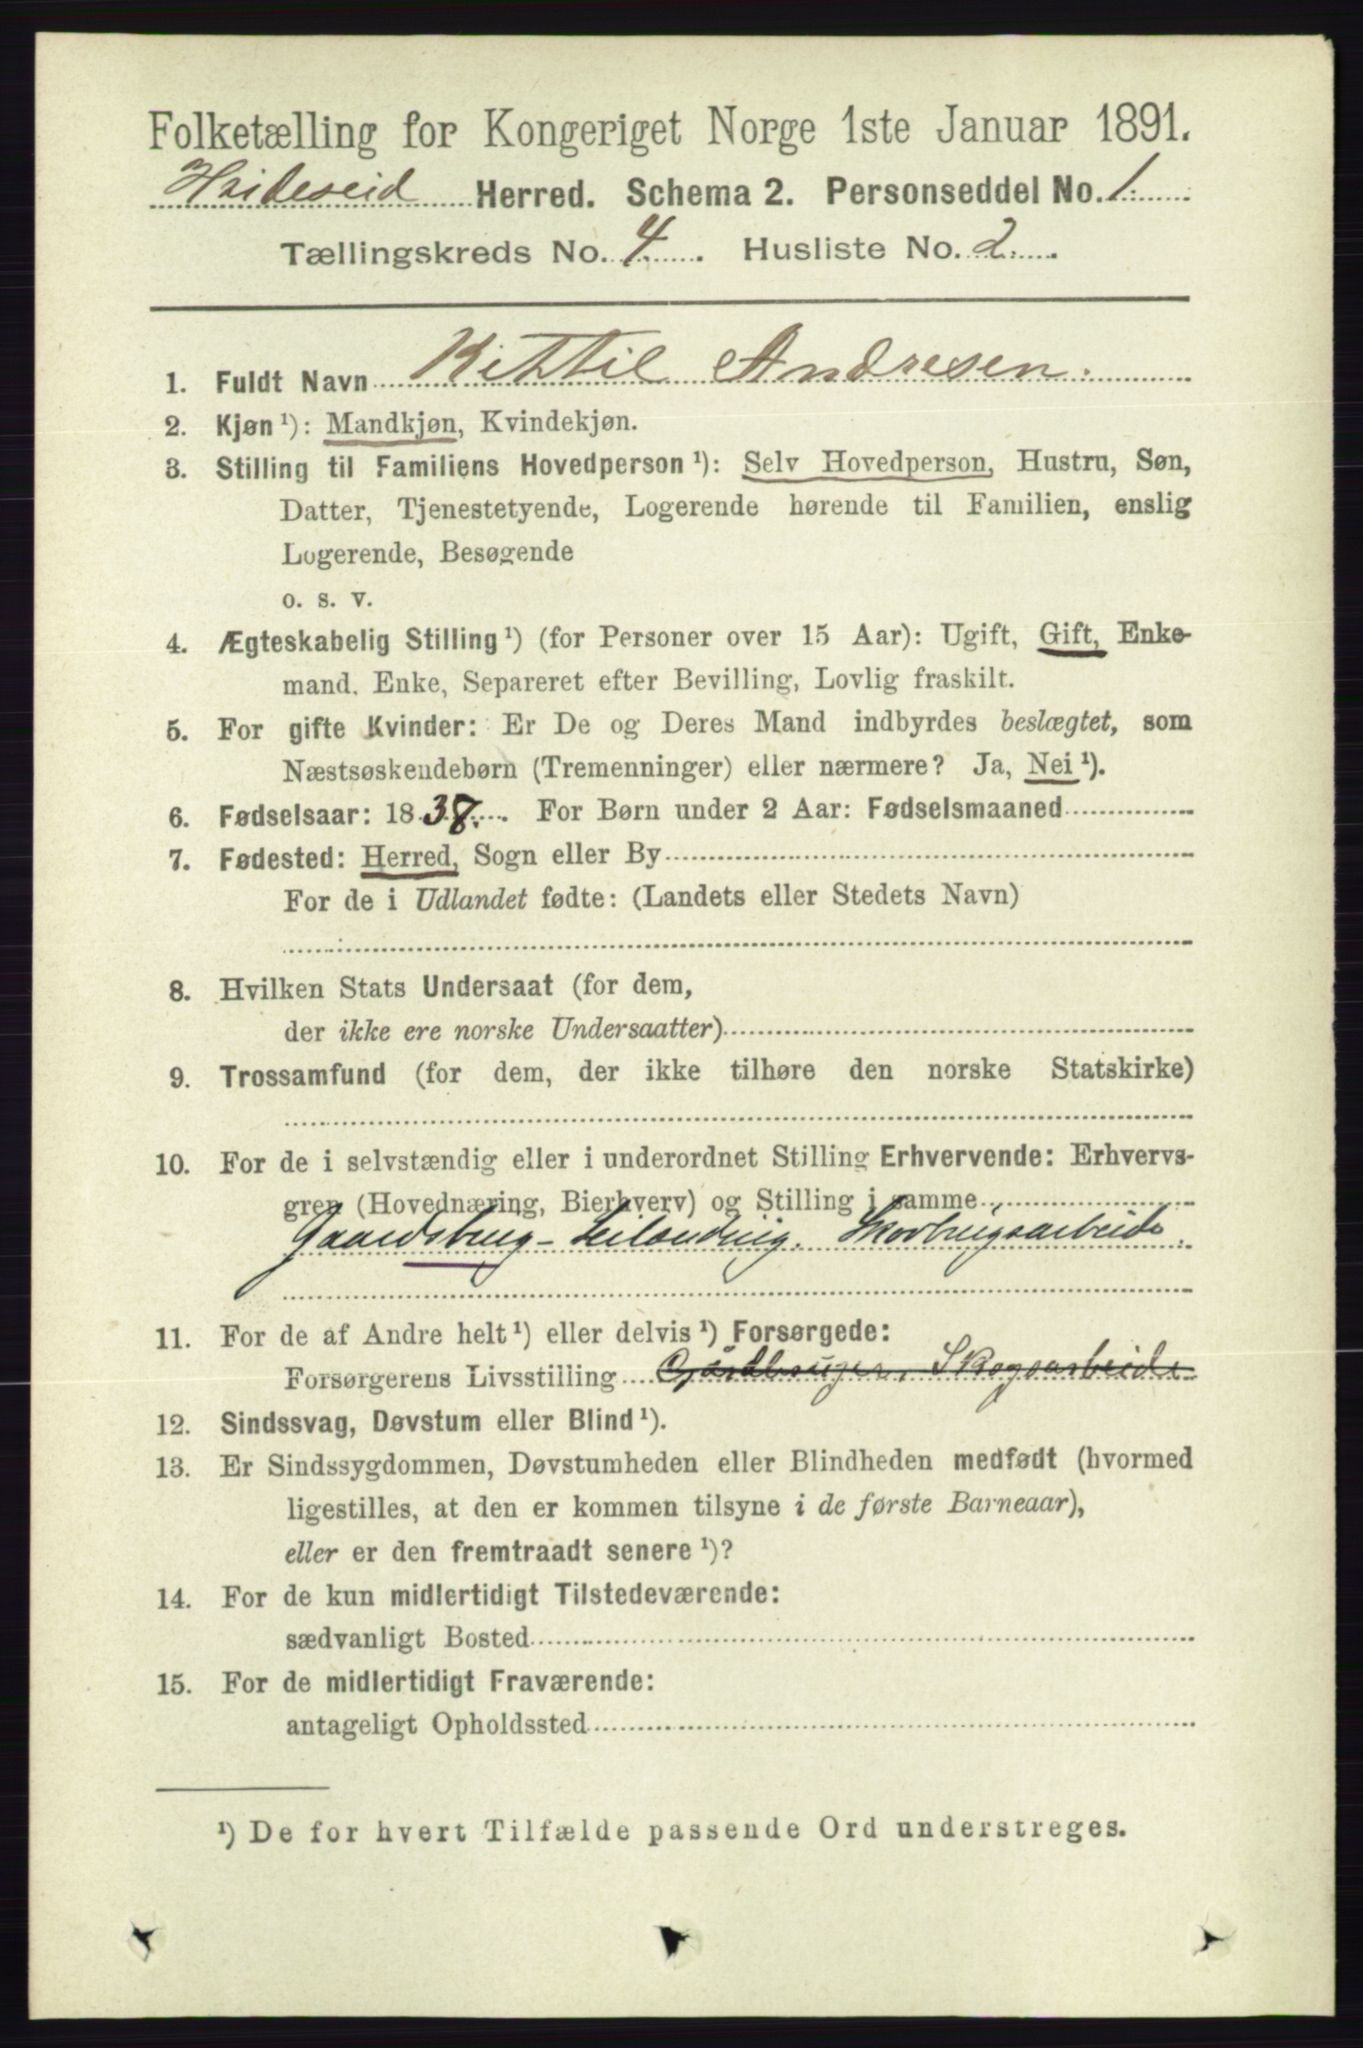 Folketælling for Kongeriget Norge 1ste Januar 1891.
Hvideseid Herred. Schema 2. Personseddel No. 1.
Tællingskreds No. 4. Husliste No. 2.
1. Fuldt Navn Kittil Andresen.
2. Kjøn¹): Mandkjøn, Kvindekjøn.
3. Stilling til Familiens Hovedperson¹): Selv Hovedperson, Hustru, Søn,
Datter, Tjenestetyende, Logerende hørende til Familien, enslig
Logerende, Besøgende
o. s. v.
4. Ægteskabelig Stilling¹) (for Personer over 15 Aar): Ugift, Gift, Enke-
mand, Enke, Separeret efter Bevilling, Lovlig fraskilt.
5. For gifte Kvinder: Er De og Deres Mand indbyrdes beslægtet, som
Næstsøskendebørn (Tremenninger) eller nærmere? Ja, Nei¹).
6. Fødselsaar: 1838. For Børn under 2 Aar: Fødselsmaaned
7. Fødested: Herred, Sogn eller By
For de i Udlandet fødte: (Landets eller Stedets Navn)
8. Hvilken Stats Undersaat (for dem,
der ikke ere norske Undersaatter)
9. Trossamfund (for dem, der ikke tilhøre den norske Statskirke)
10. For de i selvstændig eller i underordnet Stilling Erhvervende: Erhvervs-
gren (Hovednæring, Bierhverv) og Stilling i samme
Gaardsbrug - Leilending. Skovbrugsarbeide.
11. For de af Andre helt¹) eller delvis¹) Forsørgede:
Forsørgerens Livsstilling Gårdbruger, Skogsarbeide
12. Sindssvag, Døvstum eller Blind¹).
13. Er Sindssygdommen, Døvstumheden eller Blindheden medfødt (hvormed
ligestilles, at den er kommen tilsyne i de første Barneaar),
eller er den fremtraadt senere¹)?
14. For de kun midlertidigt Tilstedeværende:
sædvanligt Bosted
15. For de midlertidigt Fraværende:
antageligt Opholdssted
¹) De for hvert Tilfælde passende Ord understreges.